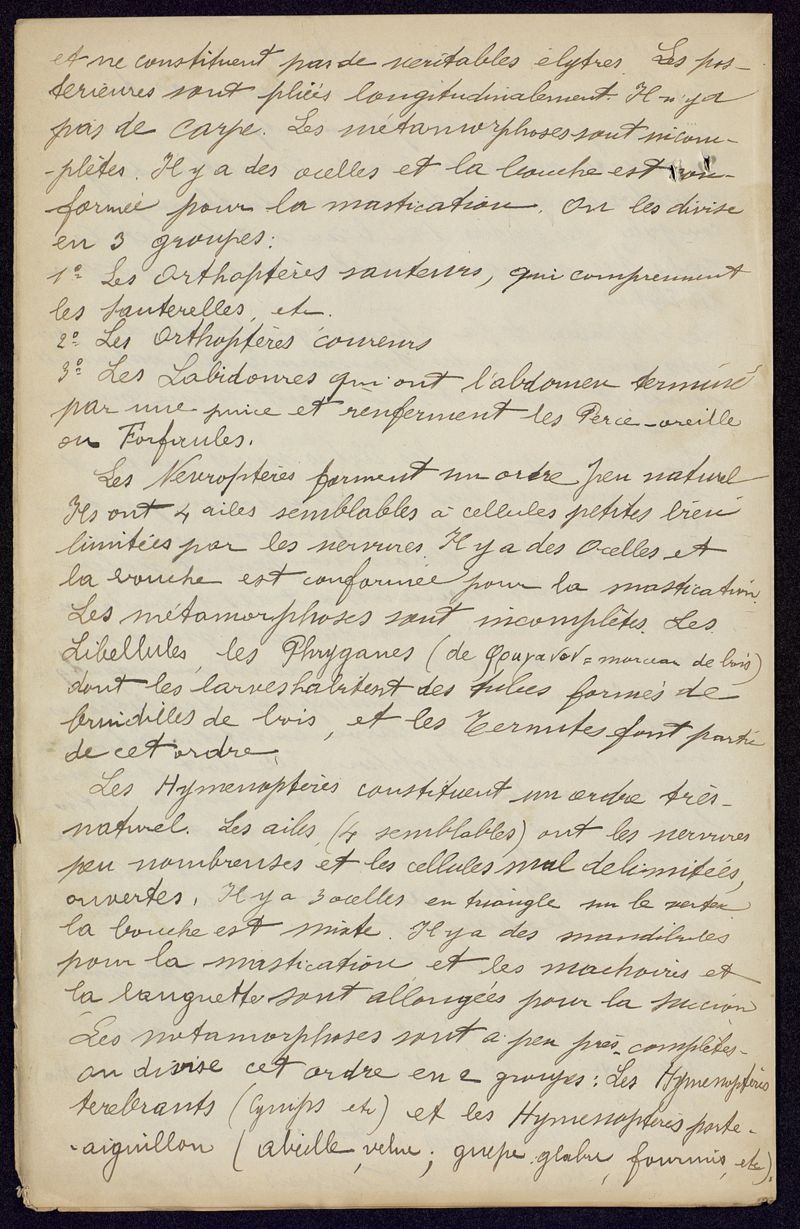 et ne constituent pas de veritables élytres. Les pos-
terieures sont pliées longitudinalement. Il n'y a
pas de carpe. Les métamorphoses sont incom-
-plètes. Il y a des ocelles et la bouche est con-
formée pour la mastication. On les divise
en 3 groupes:
1º Les Orthoptères sauteurs, qui comprennent
les sauterelles, etc.
2º Les Orthoptères coureurs
3º Les Labidoures qui ont l'abdomen terminé
par une pince et renferment les Perce-oreille
ou Forficules.
Les Nevroptères forment un ordre peu naturel
Ils ont 4 ailes semblables à cellules petites bien
limitées par les nervures. Il y a des Ocelles et
la bouche est conformée pour la mastication.
Les métamorphoses sont incomplètes. Les
Libellules, les Phryganes (de = morceau de bois)
dont les larves habitent des tubes formés de
brindilles de bois, et les Termites font partie
de cet ordre.
Les Hymenoptères constituent un ordre très-
naturel. Les ailes (4 semblables) ont les nervures
peu nombreuses et les cellules mal delimitées,
ouvertes. Il y a 3 ocelles en triangle sur le vertex
la bouche est mixte. Il y a des mandibules
pour la mastication et les machoires et
la languette sont allongées pour la succion
Les metamorphoses sont à peu près complètes-
on divise cet ordre en 2 groupes: Les Hymenoptères
terebrants (Cynips etc) et les Hymenoptères porte-
-aiguillon (abeille, velue; guepe glabre, fourmis, etc).